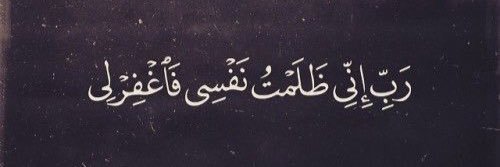 رَبِّ إِنِّي ظَلَمْتُ نَفْسِى فَٱغْفِرْلِى